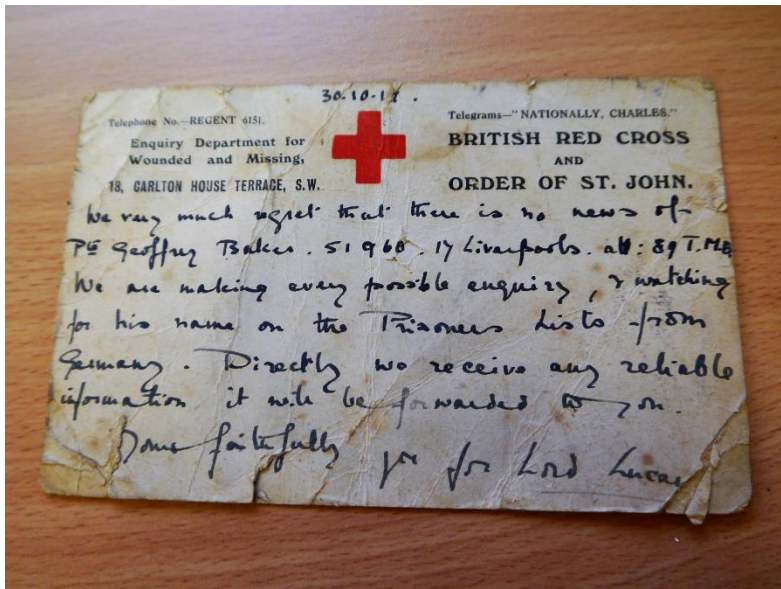 30.10.17.
Telephone No.—REGENT 6151.
Enquiry Department for
Wounded and Missing,
18, CARLTON HOUSE TERRACE, S.W.
Telegrams—"NATIONALLY, CHARLES."
BRITISH RED CROSS
AND
ORDER OF ST. JOHN.
We very much regret that there is no news of
Pte Geoffrey Baker. 51960. 17 Liverpools. att: 89 T.M.B.
We are making every possible enquiry, & watching
for his name on the Prisoners Lists from
Germany. Directly we receive any reliable
information it will be forwarded to you.
Yours faithfully
for Lord Lucan